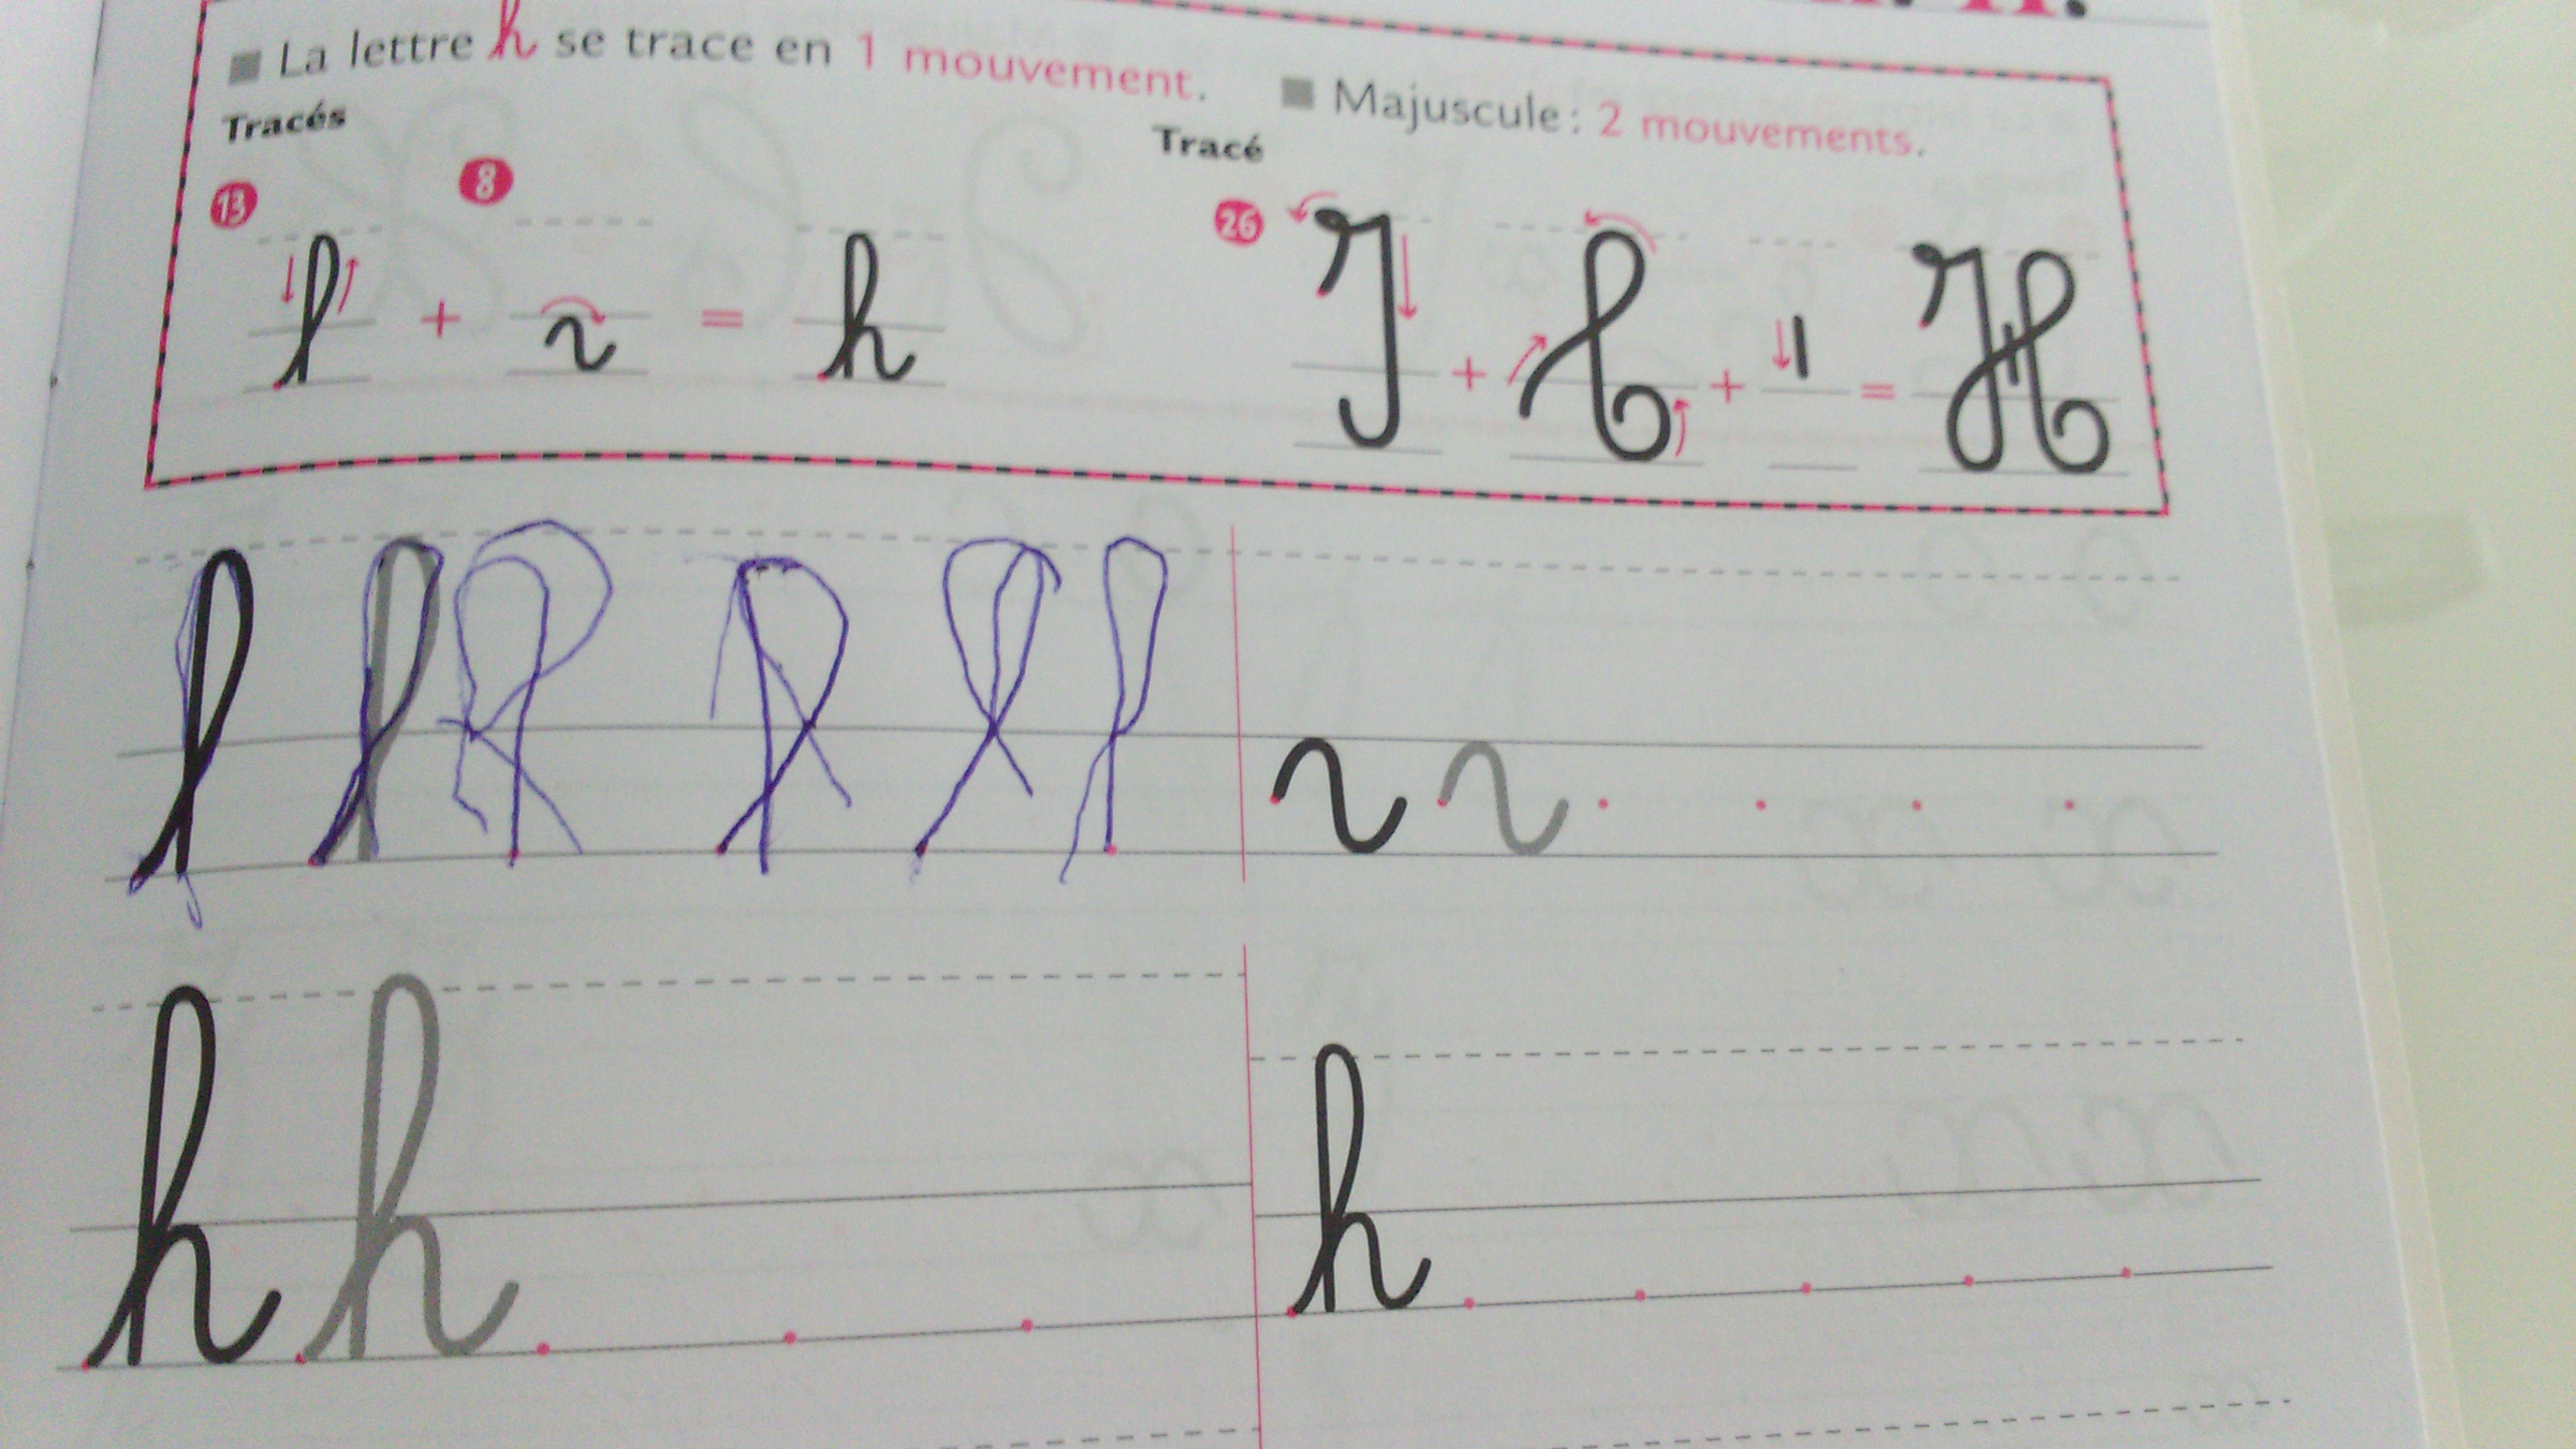 ■ La lettre h se trace en 1 mouvement.
■ Majuscule : 2 mouvements.
Tracés
Tracé
13 8 26
l + = h
+ + ı = H
h h
h